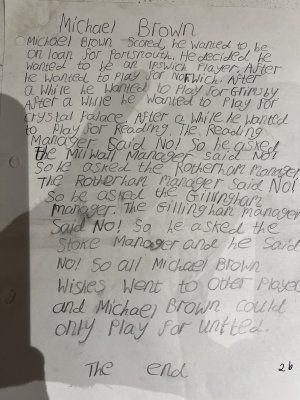 Michael Brown
Michael Brown Scored, he wanted to be
on loan for Portsmouth. He decided he
wanted to be an Ipswich Player. After
he wanted to Play for Norwich. After
a while he wanted to Play for Grimsby
After a while he wanted to Play for
Crystal Palace. After a while he wanted
to Play for Reading. The Reading
Manager Said No! So he asked
the Millwall Manager said No!
So he asked the Rotherham manager
The Rotherham manager Said No!
So he asked the Gillingham
manager. The Gillingham manager
Said No! So he asked the
Stoke Manager and he said
No! So all Michael Brown
Wishes Went to other Played
and Michael Brown Could
only Play for United.
The end
26